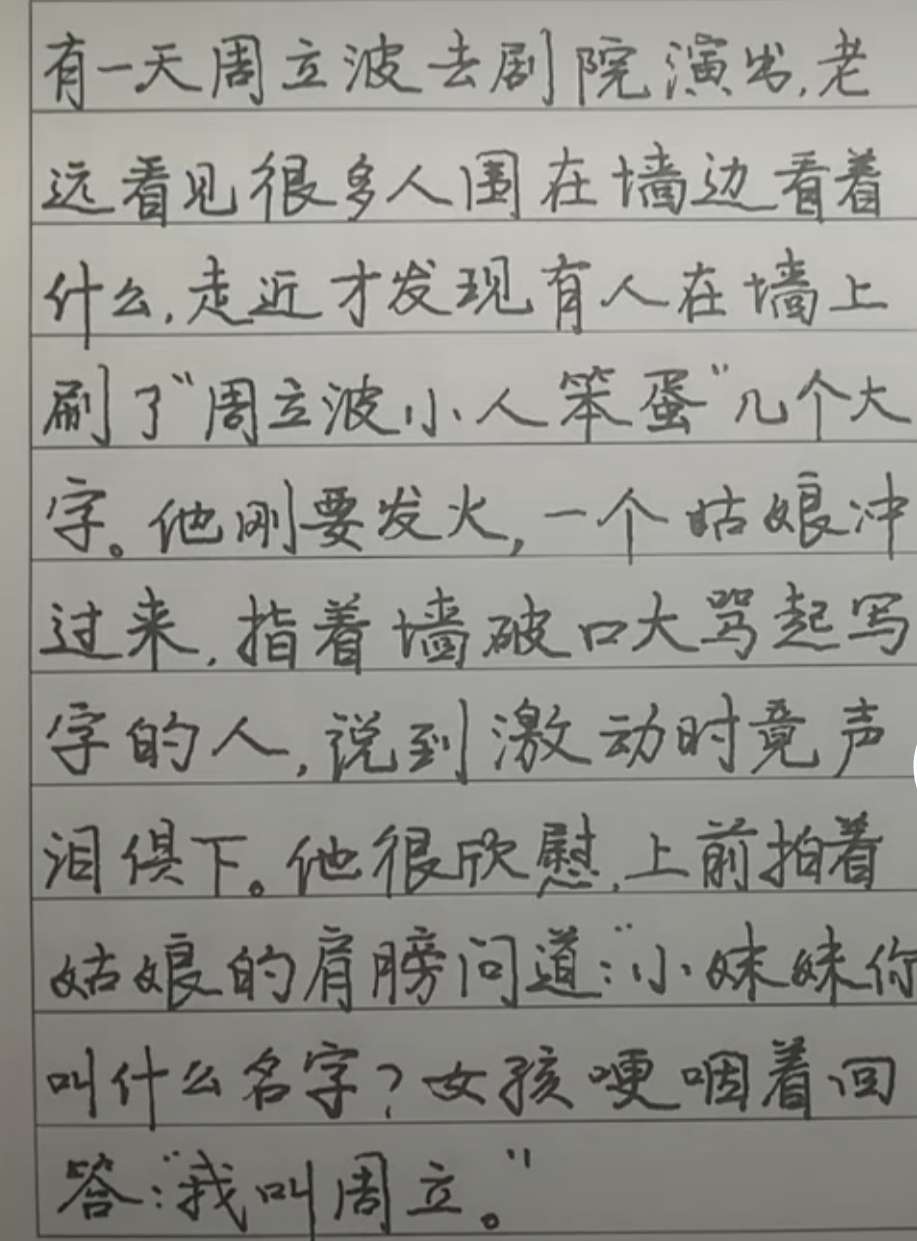 有一天周立波去剧院演出,老
远看见很多人围在墙边看着
什么,走近才发现有人在墙上
刷了“周立波小人笨蛋”几个大
字。他刚要发火,一个姑娘冲
过来,指着墙破口大骂起写
字的人,说到激动时竟声
泪俱下。他很欣慰,上前拍着
姑娘的肩膀问道:“小妹妹你
叫什么名字?女孩哽咽着回
答:“我叫周立。”